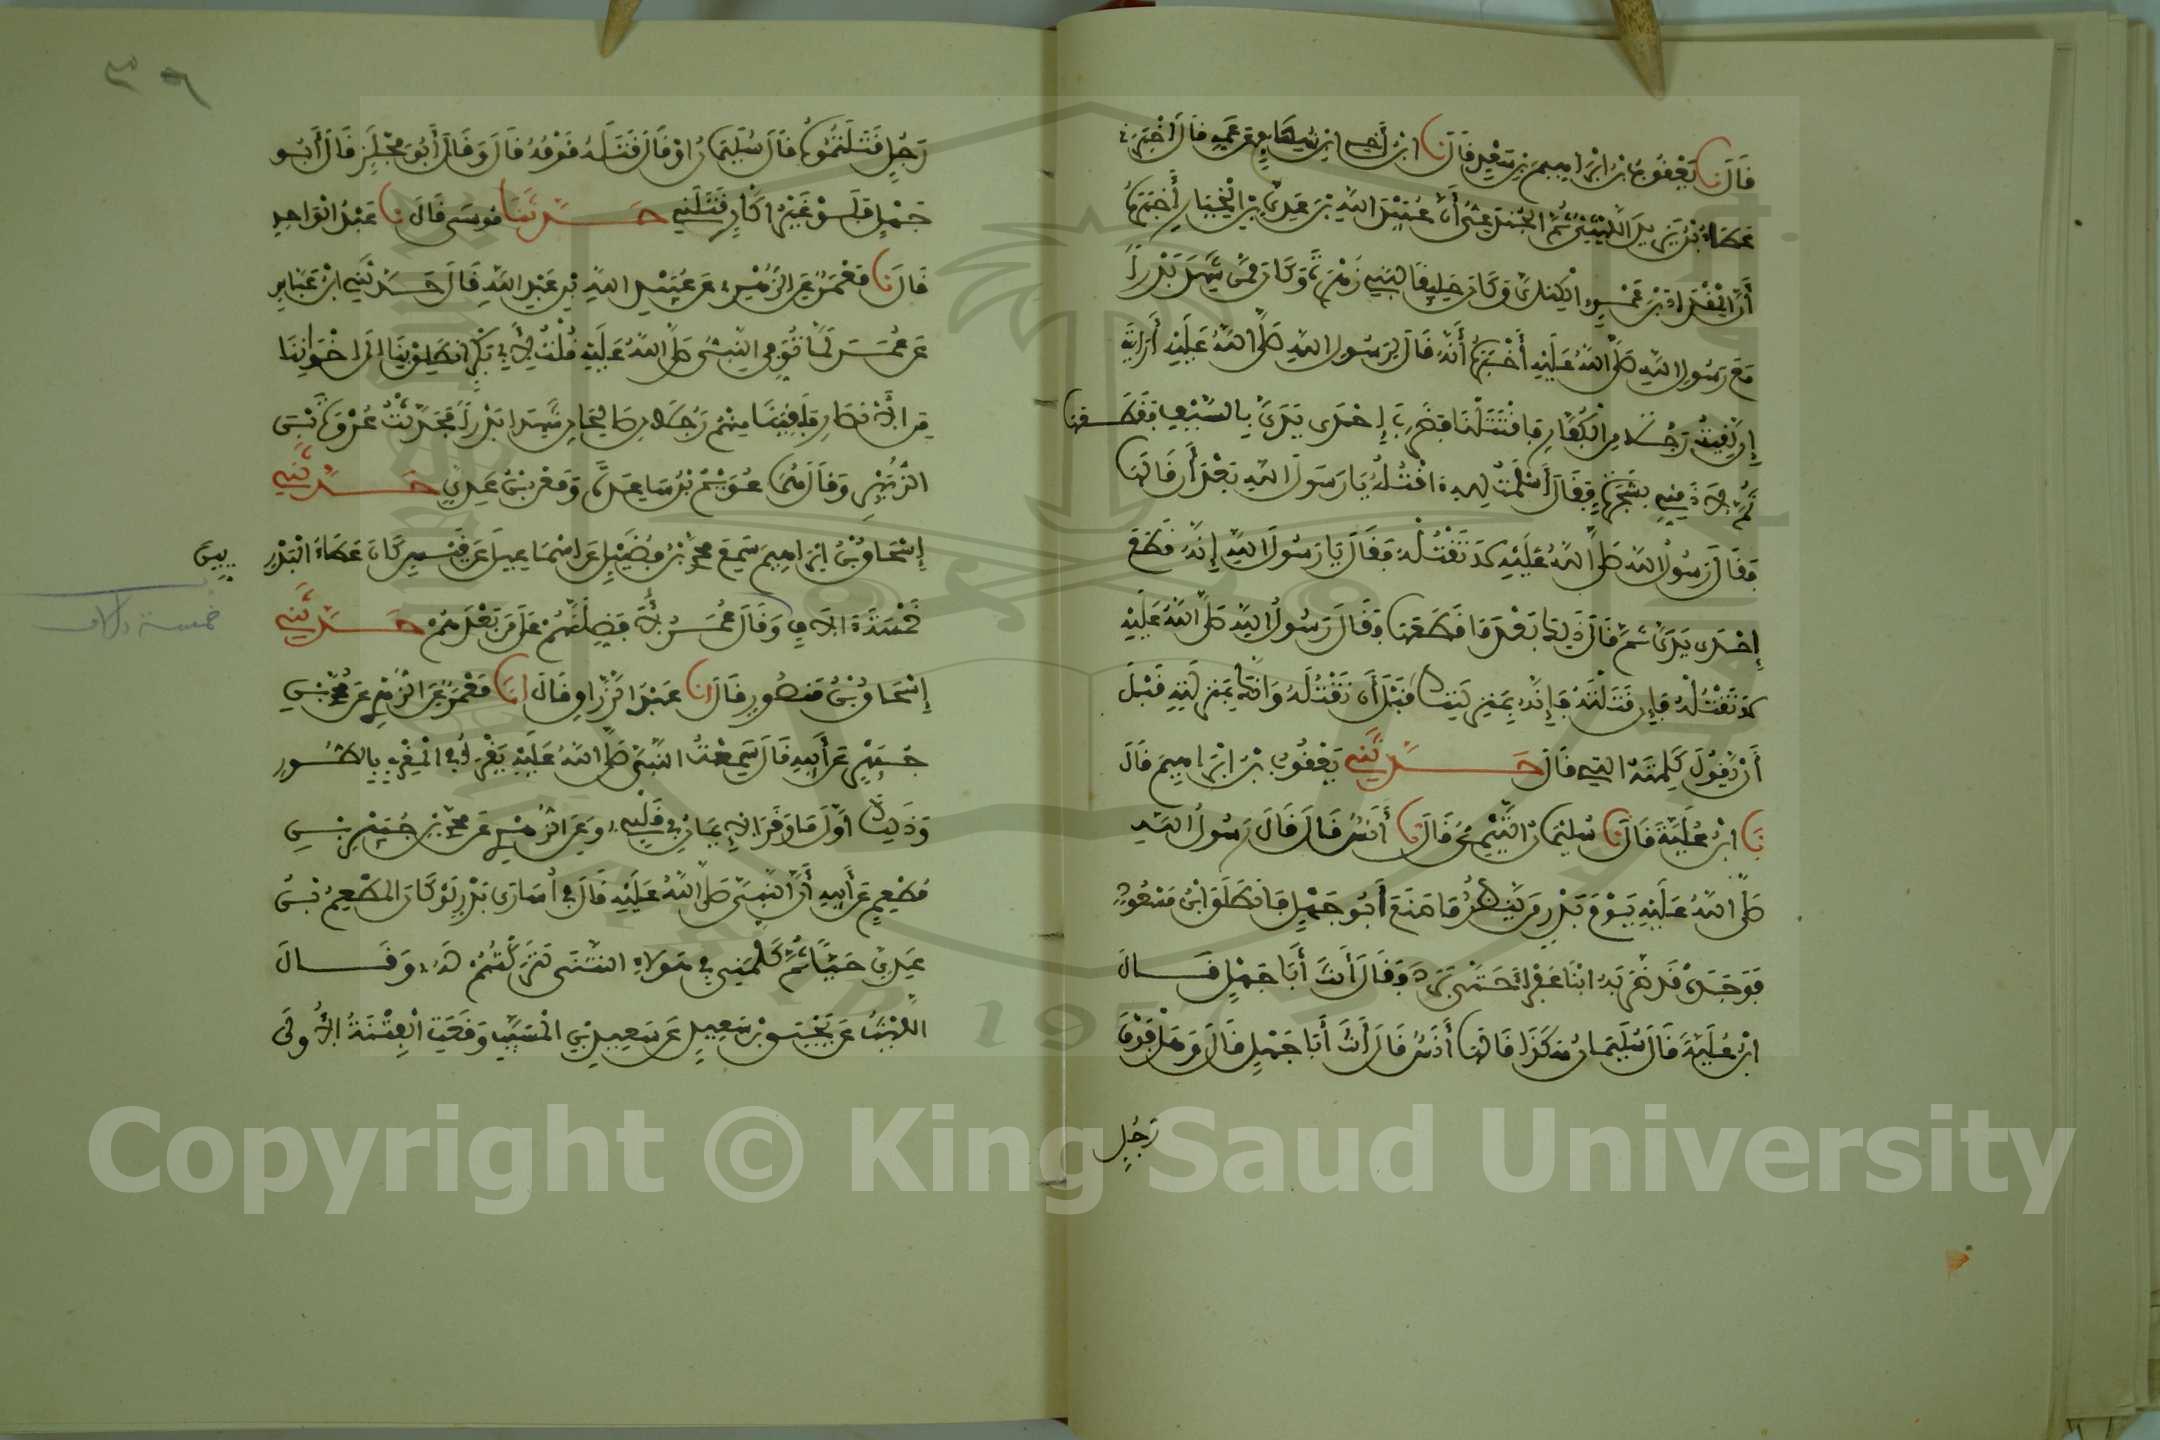 قَالَ نَا يَعْقُوبُ بْنُ إِبْرَاهِيمَ بْنِ سَعْدٍ قَالَ نَا ابْنُ أَخِي ابْنِ شِهَابٍ عَنْ عَمِّهِ قَالَ أَخْبَرَنِي
عَطَاءُ بْنُ يَزِيدَ اللَّيْثِيُّ ثُمَّ الْجُنْدَعِيُّ أَنَّ عُبَيْدَ اللَّهِ بْنَ عَدِيِّ بْنِ الْخِيَارِ أَخْبَرَهُ
أَنَّ الْمِقْدَادَ بْنَ عَمْرٍو الْكِنْدِيَّ وَكَانَ حَلِيفًا لِبَنِي زُهْرَةَ وَكَانَ مِمَّنْ شَهِدَ بَدْرًا
مَعَ رَسُولِ اللَّهِ صَلَّى اللَّهُ عَلَيْهِ أَخْبَرَهُ أَنَّهُ قَالَ لِرَسُولِ اللَّهِ صَلَّى اللَّهُ عَلَيْهِ أَرَأَيْتَ
إِنْ لَقِيتُ رَجُلًا مِنَ الْكُفَّارِ فَاقْتَتَلْنَا فَضَرَبَ إِحْدَى يَدَيَّ بِالسَّيْفِ فَقَطَعَهَا
ثُمَّ لَاذَ مِنِّي بِشَجَرَةٍ فَقَالَ أَسْلَمْتُ لِلَّهِ أَقْتُلُهُ يَا رَسُولَ اللَّهِ بَعْدَ أَنْ قَالَهَا
فَقَالَ رَسُولُ اللَّهِ صَلَّى اللَّهُ عَلَيْهِ لَا تَقْتُلْهُ فَقَالَ يَا رَسُولَ اللَّهِ إِنَّهُ قَطَعَ
إِحْدَى يَدَيَّ ثُمَّ قَالَ ذَلِكَ بَعْدَ مَا قَطَعَهَا فَقَالَ رَسُولُ اللَّهِ صَلَّى اللَّهُ عَلَيْهِ
لَا تَقْتُلْهُ فَإِنْ قَتَلْتَهُ فَإِنَّهُ بِمَنْزِلَتِكَ قَبْلَ أَنْ تَقْتُلَهُ وَإِنَّكَ بِمَنْزِلَتِهِ قَبْلَ
أَنْ يَقُولَ كَلِمَتَهُ الَّتِي قَالَ حَدَّثَنِي يَعْقُوبُ بْنُ إِبْرَاهِيمَ قَالَ
نَا ابْنُ عُلَيَّةَ قَالَ نَا سُلَيْمَانُ التَّيْمِيُّ قَالَ نَا أَنَسٌ قَالَ قَالَ رَسُولُ اللَّهِ
صَلَّى اللَّهُ عَلَيْهِ يَوْمَ بَدْرٍ مَنْ يَنْظُرُ مَا صَنَعَ أَبُو جَهْلٍ فَانْطَلَقَ ابْنُ مَسْعُودٍ
فَوَجَدَهُ قَدْ ضَرَبَهُ ابْنَا عَفْرَاءَ حَتَّى بَرَدَ فَقَالَ أَنْتَ أَبَا جَهْلٍ قَالَ
ابْنُ عُلَيَّةَ قَالَ سُلَيْمَانُ هَكَذَا قَالَهَا أَنَسٌ قَالَ أَنْتَ أَبَا جَهْلٍ قَالَ وَهَلْ فَوْقَ
رَجُلٍ
٣٩
رَجُلٍ قَتَلْتُمُوهُ قَالَ سُلَيْمَانُ أَوْ قَالَ قَتَلَهُ قَوْمُهُ قَالَ وَقَالَ أَبُو مِجْلَزٍ قَالَ أَبُو
جَهْلٍ فَلَوْ غَيْرُ أَكَّارٍ قَتَلَنِي حَدَّثَنَا مُوسَى قَالَ نَا عَبْدُ الْوَاحِدِ
قَالَ نَا مَعْمَرٌ عَنِ الزُّهْرِيِّ عَنْ عُبَيْدِ اللَّهِ بْنِ عَبْدِ اللَّهِ قَالَ حَدَّثَنِي ابْنُ عَبَّاسٍ
عَنْ عُمَرَ لَمَّا تُوُفِّيَ النَّبِيُّ صَلَّى اللَّهُ عَلَيْهِ قُلْتُ لِأَبِي بَكْرٍ انْطَلِقْ بِنَا إِلَى إِخْوَانِنَا
مِنَ الْأَنْصَارِ فَلَقِيَنَا مِنْهُمْ رَجُلَانِ صَالِحَانِ شَهِدَا بَدْرًا فَحَدَّثْتُ عُرْوَةَ بْنَ
الزُّبَيْرِ وَقَالَ هُمَا عُوَيْمُ بْنُ سَاعِدَةَ وَمَعْنُ بْنُ عَدِيٍّ حَدَّثَنِي
إِسْحَاقُ بْنُ إِبْرَاهِيمَ سَمِعَ مُحَمَّدَ بْنَ فُضَيْلٍ عَنْ إِسْمَاعِيلَ عَنْ قَيْسٍ كَانَ عَطَاءُ الْبَدْرِ
يِّينَ
خَمْسَةَ آلَافٍ وَقَالَ عُمَرُ لَأُفَضِّلَنَّهُمْ عَلَى مَنْ بَعْدَهُمْ حَدَّثَنِي
خمسة الاف
إِسْحَاقُ بْنُ مَنْصُورٍ قَالَ أَنَا عَبْدُ الرَّزَّاقِ قَالَ أَنَا مَعْمَرٌ عَنِ الزُّهْرِيِّ عَنْ مُحَمَّدِ بْنِ
جُبَيْرٍ عَنْ أَبِيهِ قَالَ سَمِعْتُ النَّبِيَّ صَلَّى اللَّهُ عَلَيْهِ يَقْرَأُ فِي الْمَغْرِبِ بِالطُّورِ
وَذَلِكَ أَوَّلَ مَا وَقَرَ الْإِيمَانُ فِي قَلْبِي وَعَنِ الزُّهْرِيِّ عَنْ مُحَمَّدِ بْنِ جُبَيْرِ بْنِ
مُطْعِمٍ عَنْ أَبِيهِ أَنَّ النَّبِيَّ صَلَّى اللَّهُ عَلَيْهِ قَالَ فِي أُسَارَى بَدْرٍ لَوْ كَانَ الْمُطْعِمُ بْنُ
عَدِيٍّ حَيًّا ثُمَّ كَلَّمَنِي فِي هَؤُلَاءِ النَّتْنَى لَتَرَكْتُهُمْ لَهُ وَقَالَ
اللَّيْثُ عَنْ يَحْيَى بْنِ سَعِيدٍ عَنْ سَعِيدِ بْنِ الْمُسَيَّبِ وَقَعَتِ الْفِتْنَةُ الْأُولَى
Copyright © King Saud University